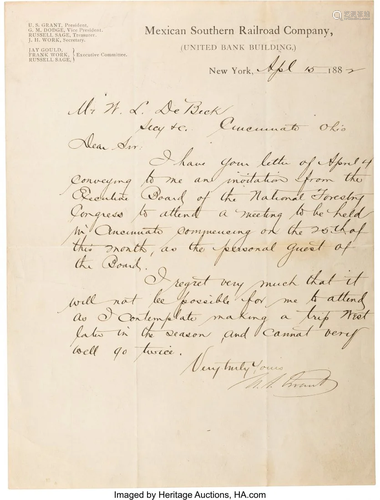 U. S. GRANT, President,
G. M. DODGE, Vice President.
RUSSELL SAGE, Treasurer.
J. H. WORK, Secretary.
JAY GOULD,
FRANK WORK,
RUSSELL SAGE,
Executive Committee.
Mexican Southern Railroad Company,
(UNITED BANK BUILDING,)
New York, Apl 15 1882
Mr W. L. DeBeck
Secy &c. Cincinnati Ohio
Dear Sir
I have your letter of April 4
conveying to me an invitation from the
Executive Board of the National Forestry
Congress to attend a meeting to be held
in Cincinnati commencing on the 25th of
this month, as the personal guest of
the Board.
I regret very much that it
will not be possible for me to attend
as I contemplate making a trip West
later in the season and cannot very
well go twice.
Very truly Yours
U. S. Grant
Imaged by Heritage Auctions, HA.com